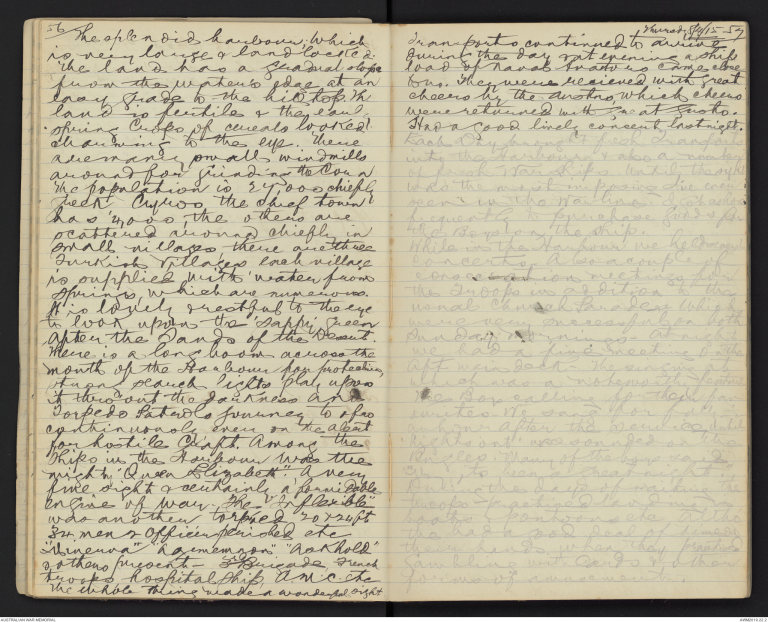 56
The splendid harbour, which
is very large & landlocked
the land has a gradual slope
from the waters edge at an
easy grade to the hill top. The
land is fertile & the early
spring crops of cereals looked
charming to the eye. There
are many small windmills
around for grinding the corn
The population is 27,000 chiefly
Greek. the chief town
has 4,000, the others are
scattered around chiefly in
small villages there are three
Turkish villages each village
is supplied with water from
springs, which are numerous.
It is lovely & restful to the eye
to look upon the "sappy" green
after the sands of the Desert.
There is a long boom across the
mouth of the Harbour for protection,
strong search lights play upon
it thro' out the darkness and
Torpedo Patrols journey to & fro
continuously ever on the alert
for hostile craft. Among the
ships in the Harbour was the
mighty "Queen Elizabeth". A very
fine sight & certainly a formidable
engine of war. The "Inflexible"
was another torpedoed 20 x 24 ft
34 men & officers perished etc
"Minerva" "Agamemnon" "Askhold"
& others present - Brigade French
troops hospital ship, A.M.C. etc
the whole thing made a wonderful sight
Thursday 8/4/15 57
Transports continued to arrive
during the day & at evening a ship
load of naval came close
to us. They were recieved with great
cheers by the Austns, which cheers
were returned with at gusto.
Had a good lively concert last night.
Each day brought fresh Transports
into the Harbour & also a number
of fresh War ships until the sight
was the most imposing I've ever
seen in the Wartime. I
frequently to purchase goods for
the Boys on the ship.
While in the Harbour we held
concerts. Also a couple of
consecration meetings for
the Troops in addition to the
usual Church Parades which
were very successful on the
Sunday mornings. At night
we had a fine meeting on the
Aft well deck. The singing of
which was a noteworthy feature
the Boys calling for their
favourites. We sang for half
an hour after the service until
"Lights out" was sounded on the
Bugles. Many of the boys said
During the days
we had a good deal of
their hands when they
gambling with cards & other
forms of amusements.
AUSTRALIAN WAR MEMORIAL
AWM2019.22.2